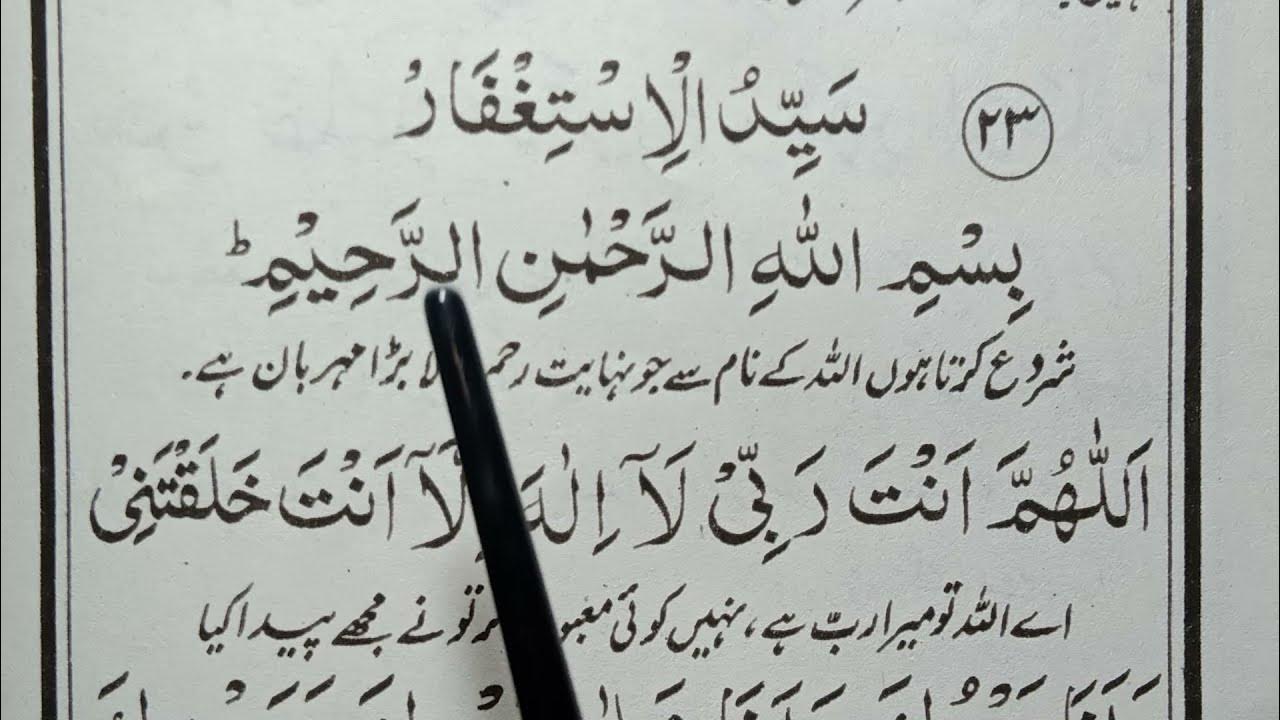 ۲۳
سَيِّدُ الْاِسْتِغْفَارُ
بِسْمِ اللّٰهِ الرَّحْمٰنِ الرَّحِيْمِ ؕ
شروع کرتا ہوں اللہ کے نام سے جو نہایت رحم بڑا مہربان ہے۔
اَللّٰهُمَّ اَنْتَ رَبِّیْ لَآ اِلٰهَ اِلَّآ اَنْتَ خَلَقْتَنِیْ
اے اللہ تو میرا ربّ ہے، نہیں کوئی تو نے مجھے پیدا کیا